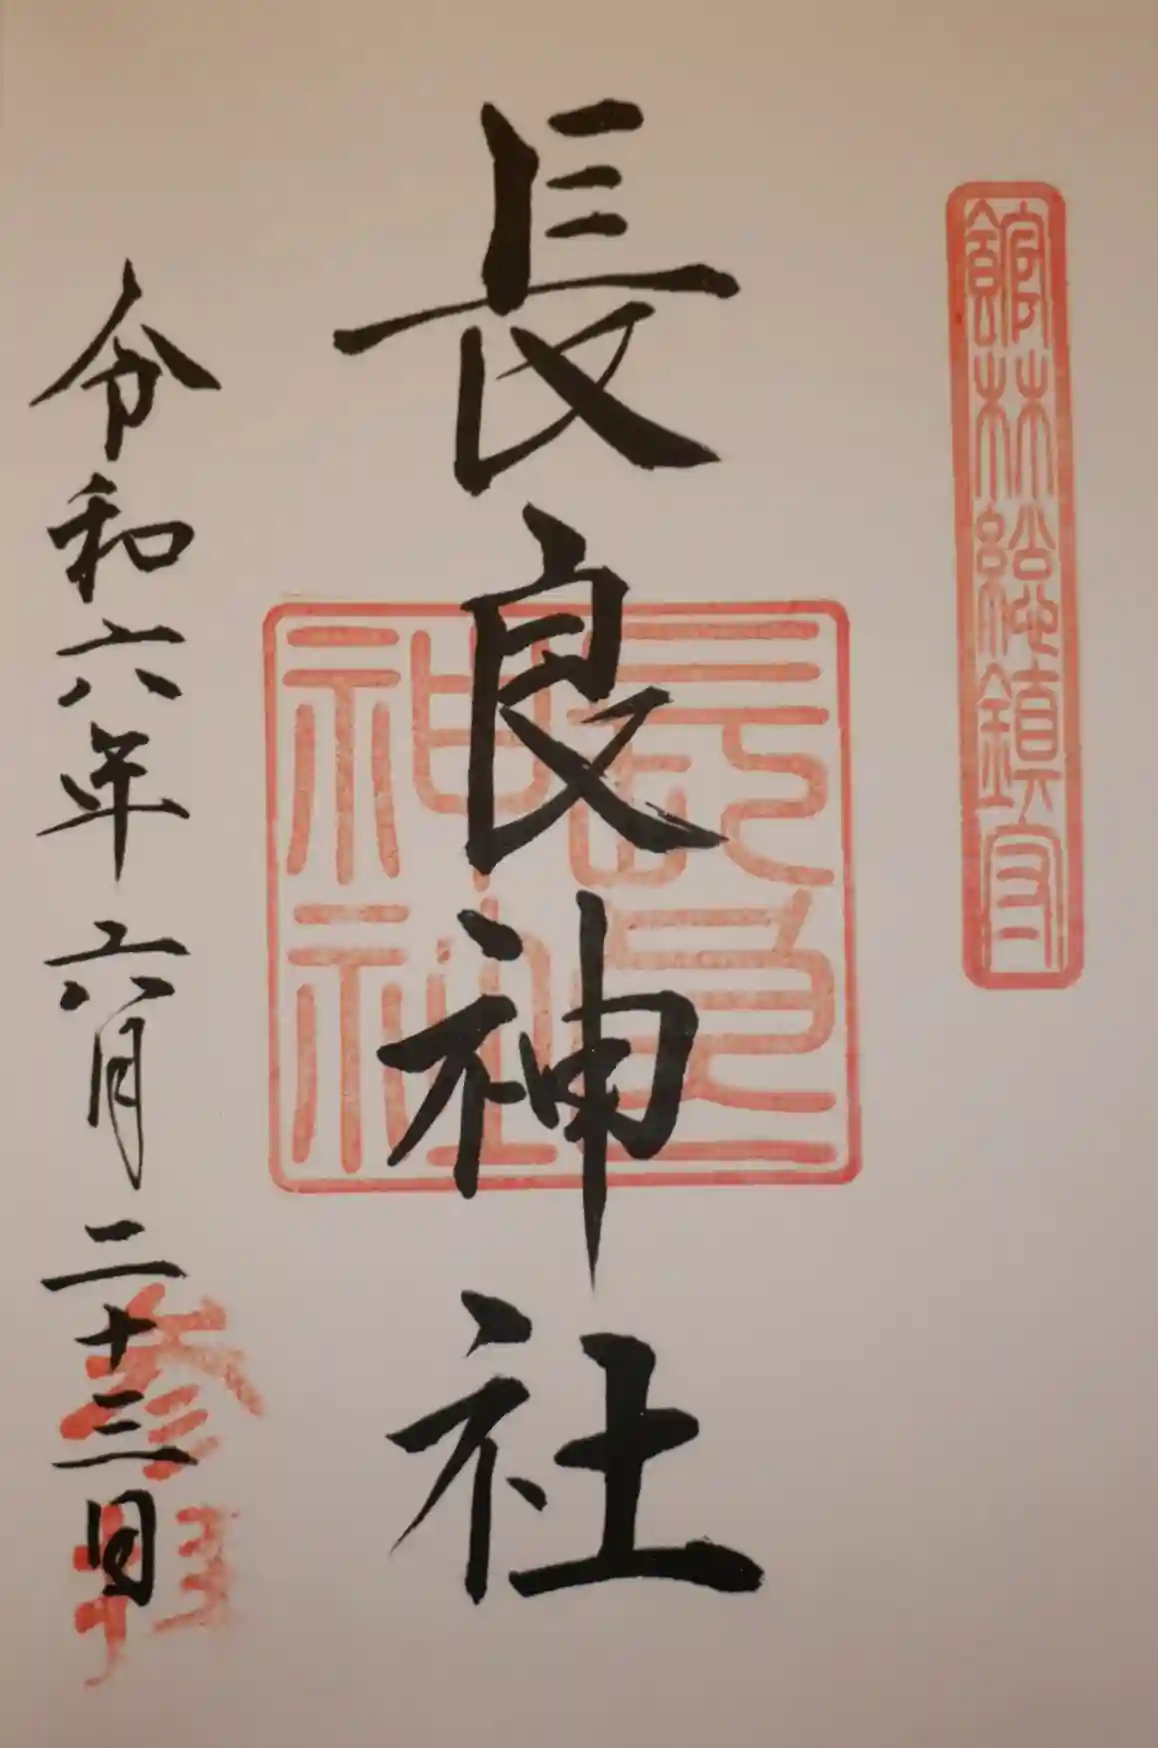 館林総鎮守
長良神社
長良神社
令和六年六月二十三日
参拝